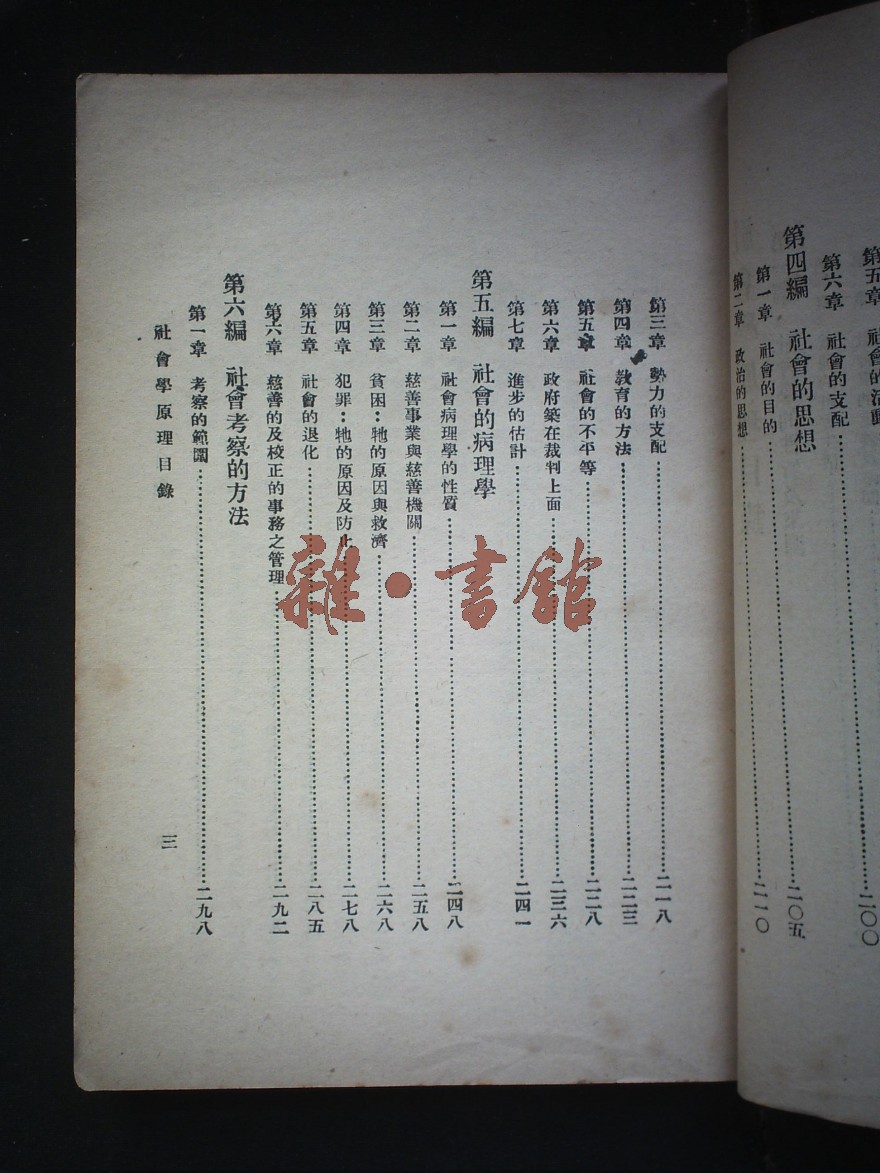 第五章 社會的活動……二〇〇
第六章 社會的支配
第四編 社會的思想
第一章 社會的目的……二〇五
第二章 政治的思想……二一〇
第三章 勢力的支配……二一八
第四章 教育的方法……二二三
第五章 社會的不平等……二二八
第六章 政府築在裁判上面……二三六
第七章 進步的估計……二四一
第五編 社會的病理學
第一章 社會病理學的性質……二四八
第二章 慈善事業與慈善機關……二五八
第三章 貧困：牠的原因與救濟……二六八
第四章 犯罪：牠的原因及防止……二七八
第五章 社會的退化……二八五
第六章 慈善的及校正的事務之管理……二九二
第六編 社會考察的方法
第一章 考察的範圍……二九八
社會學原理目錄
三
雜·書館